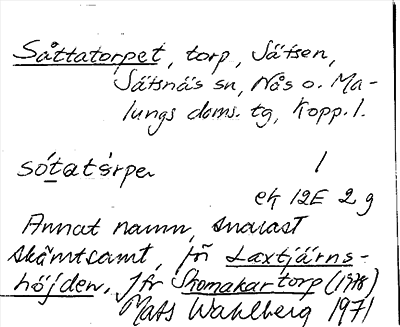 Såttatorpet, torp, Sätsen,
Sätsnäs sn, Nås o. Ma-
lungs doms. tg, Kopp. l.
sótatårper 1
ek 12E 2 g
Annat namn, snarast
skämtsamt, för Laxtjärns-
höjden. Jfr Skomakartorp (1978)
Mats Wahlberg 1971